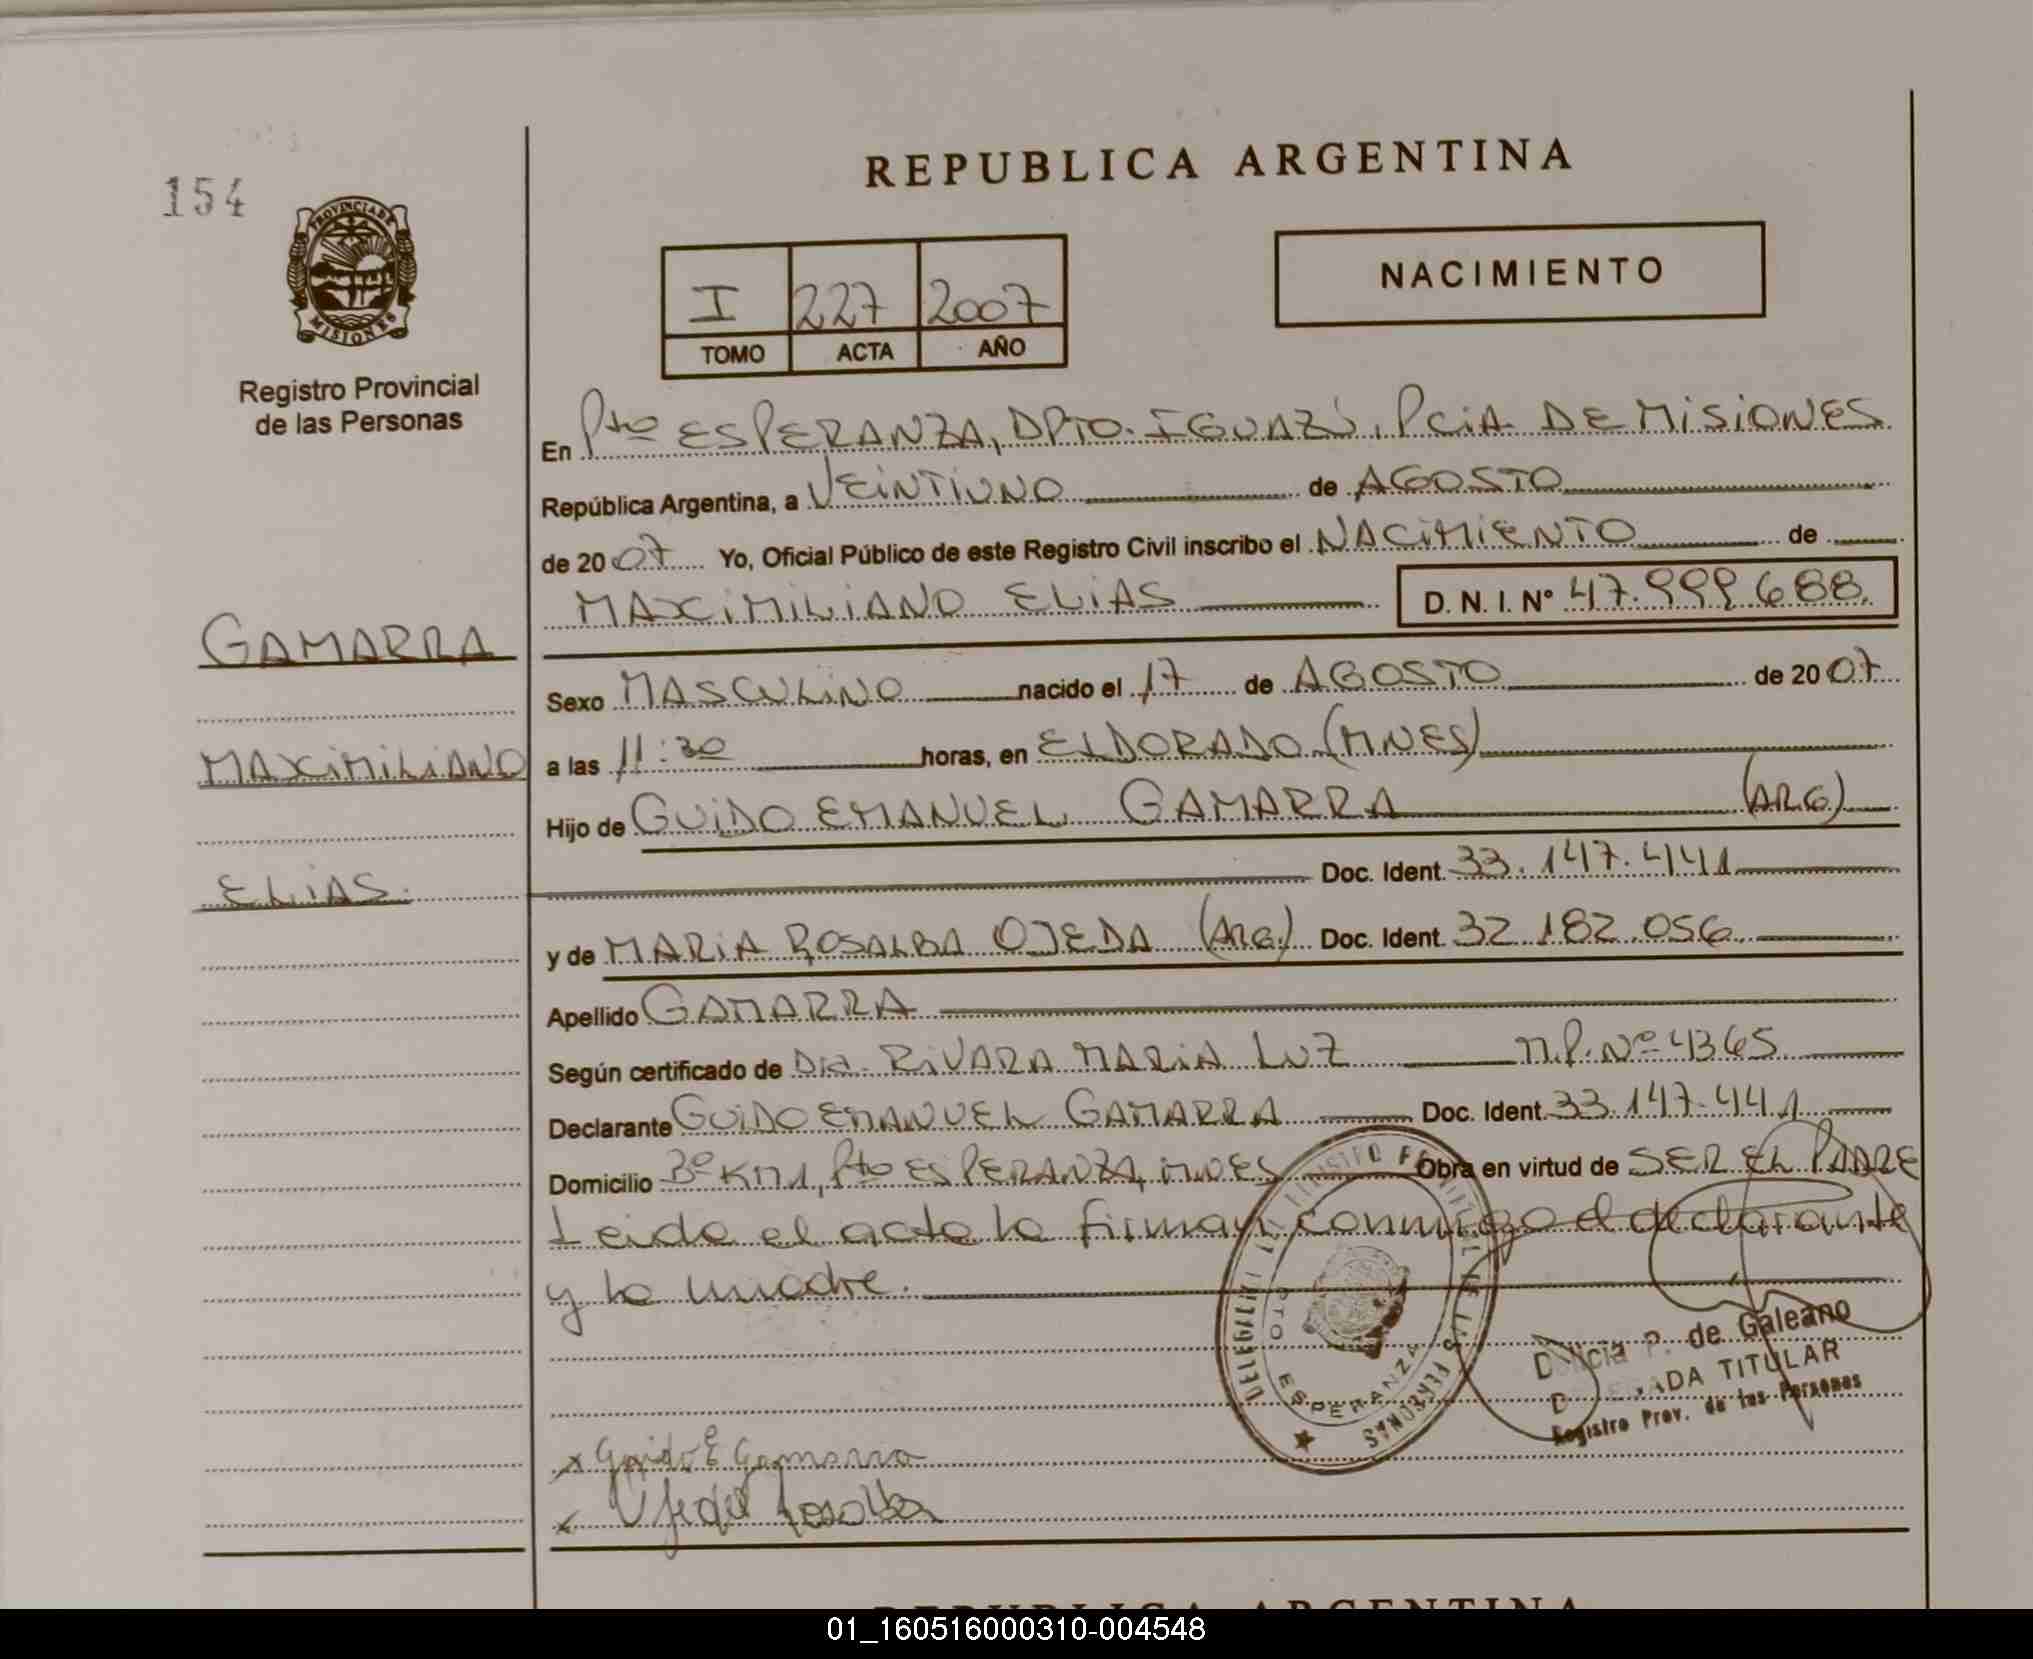 REPUBLICA ARGENTINA
154
PROVINCIA DE
MISIONES
Registro Provincial
de las Personas
NACIMIENTO
I 227 2007
TOMO ACTA AÑO
En Pto ESPERANZA, DPTO. IGUAZÚ, PCIA DE MISIONES
República Argentina, a VEINTIUNO de AGOSTO
de 2007 Yo, Oficial Público de este Registro Civil inscribo el NACIMIENTO de
MAXIMILIANO ELIAS D. N. I. N° 47.999.688.
GAMARRA
MAXIMILIANO
ELIAS.
Sexo MASCULINO nacido el 17 de AGOSTO de 2007
a las 11:30 horas, en ELDORADO (MNES)
Hijo de GUIDO EMANUEL GAMARRA (ARG)
Doc. Ident. 33.147.441
y de MARIA ROSALBA OJEDA (ARG.) Doc. Ident. 32.182.056
Apellido GAMARRA
Según certificado de DRA. RIVARA MARIA LUZ M.P. Nº 4365
Declarante GUIDO EMANUEL GAMARRA Doc. Ident. 33.147.441
Domicilio Bº KM1, Pto ESPERANZA, MNES Obra en virtud de SER EL PADRE
Leida el acta la firman conmigo el declarante
y la madre.
PTO ESPERANZA
Delicia P. de Galeano
TITULAR
Registro Prov. de las Personas
x Guido E Gamarra
x Ojeda Rosalba
REPUBLICA ARGENTINA
01_160516000310-004548